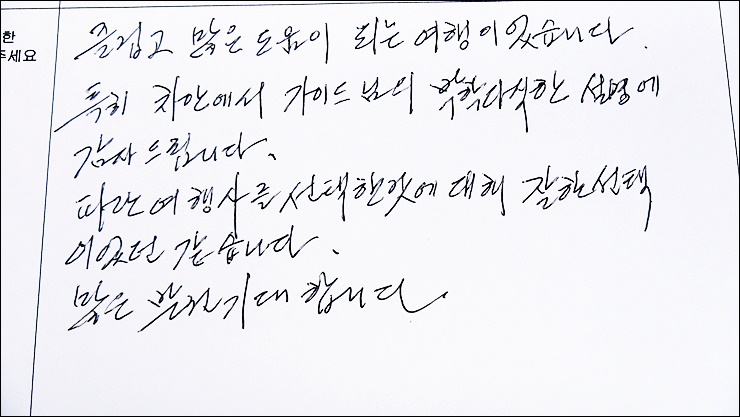 한
주세요
즐겁고 많은 도움이 되는 여행이었습니다.
특히 차안에서 가이드님의 박학다식한 설명에
감사드립니다.
파란여행사를 선택한것에 대해 잘한선택
이었던 같습니다.
많은 발전기대합니다.